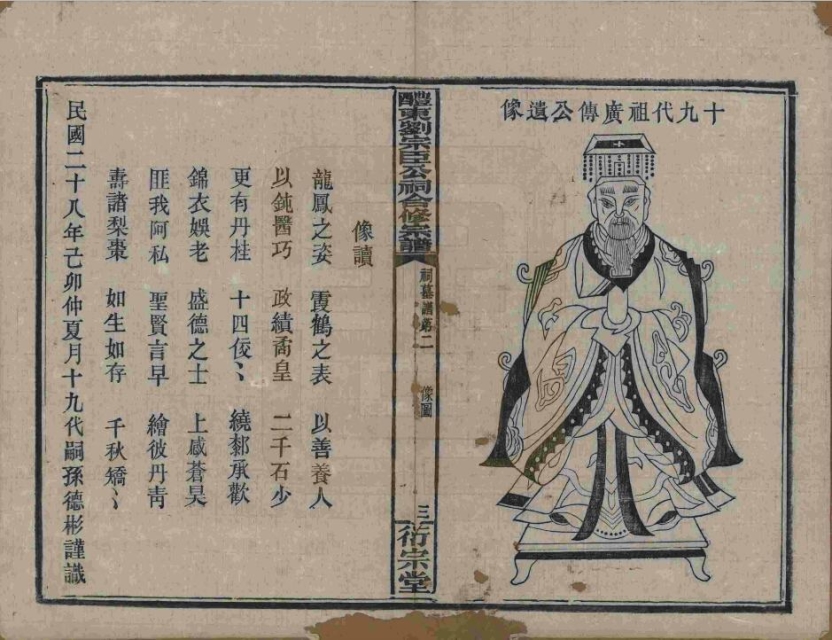 十九代祖廣傳公遺像
醴東劉宗臣公祠合修宗譜
祠墓譜第二
像圖
三
衍宗堂
像讀
龍鳳之姿 霞鶴之表 以善養人
以鈍醫巧 政績喬皇 二千石少
更有丹桂 十四俊〻 繞鄰承歡
錦衣娛老 盛德之士 上感蒼昊
匪我阿私 聖賢言早 繪彼丹靑
壽諸梨棗 如生如存 千秋矯〻
民國二十八年己卯仲夏月十九代嗣孫德彬謹識